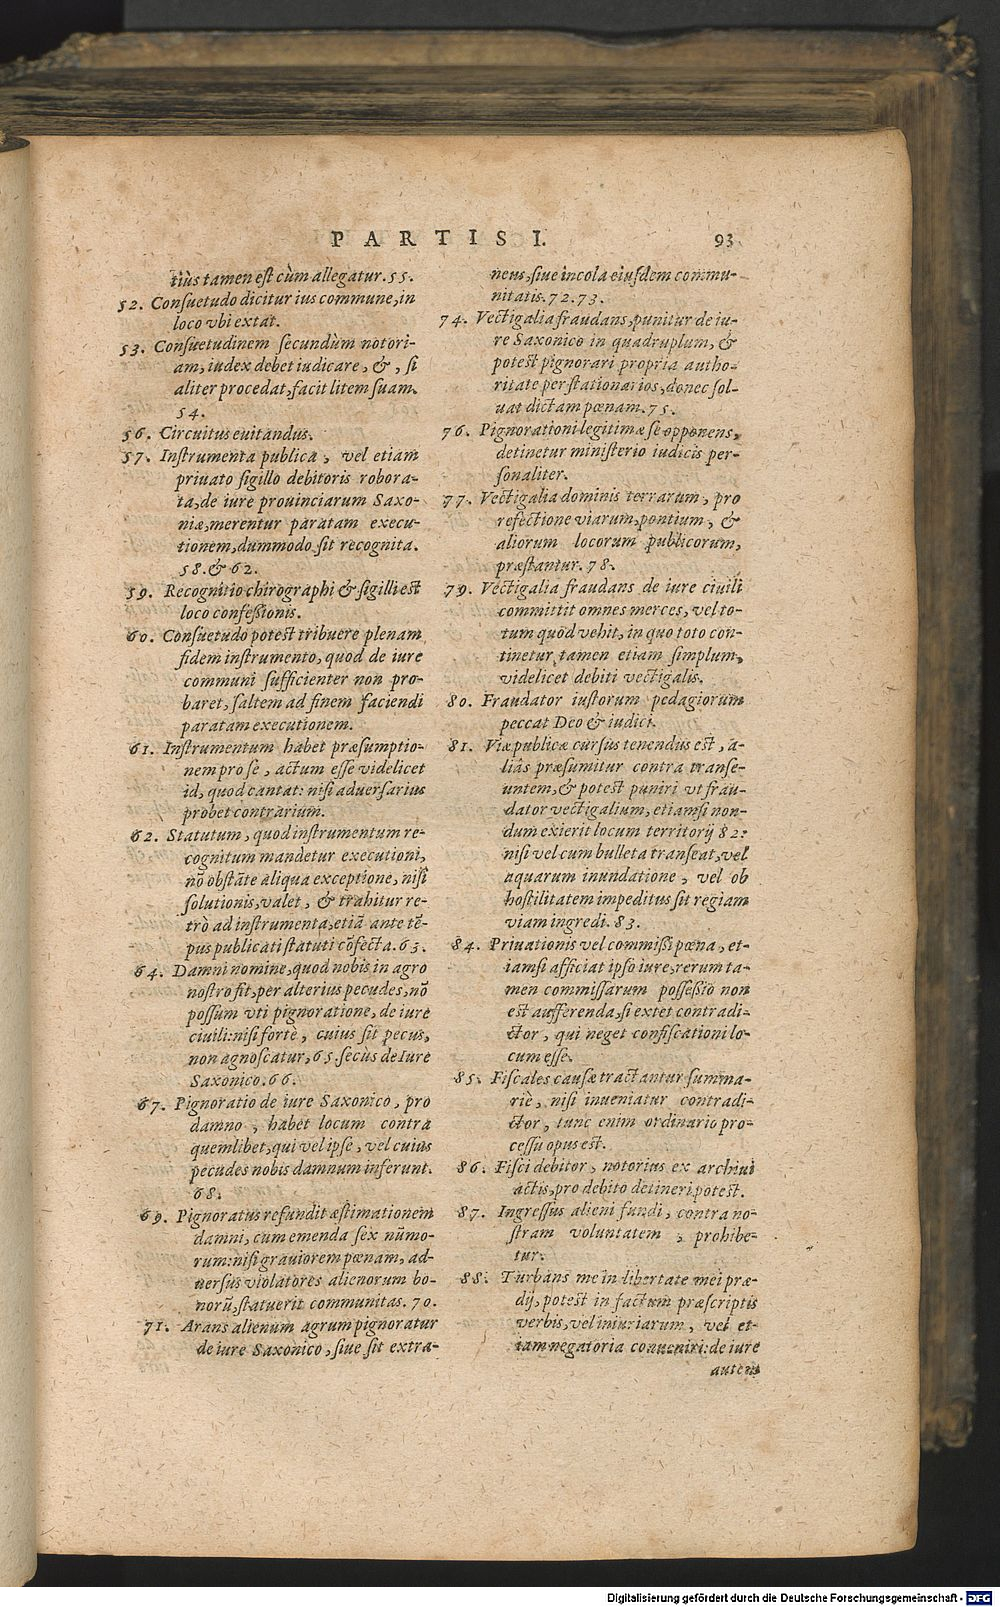 PARTIS I. 93
tiùs tamen est cùm allegatur. 55.
52. Consuetudo dicitur ius commune, in
loco vbi extat.
53. Consuetudinem secundùm notori-
am, iudex debet iudicare, &, si
aliter procedat, facit litem suam.
54.
56. Circuitus euitandus.
57. Instrumenta publica, vel etiam
priuato sigillo debitoris robora-
ta, de iure prouinciarum Saxo-
niæ, merentur paratam execu-
tionem, dummodo sit recognita.
58. & 62.
59. Recognitio chirographi & sigilli est
loco confessionis.
60. Consuetudo potest tribuere plenam
fidem instrumento, quod de iure
communi sufficienter non pro-
baret, saltem ad finem faciendi
paratam executionem.
61. Instrumentum habet præsumptio-
nem pro se, actum esse videlicet
id, quod cantat: nisi aduersarius
probet contrarium.
62. Statutum, quod instrumentum re-
cognitum mandetur executioni,
nō obstāte aliqua exceptione, nisi
solutionis, valet, & trahitur re-
trò ad instrumenta, etiā ante tē-
pus publicati statuti cōfecta. 63.
64. Damni nomine, quod nobis in agro
nostro fit, per alterius pecudes, nō
possum vti pignoratione, de iure
ciuili: nisi fortè, cuius sit pecus,
non agnoscatur, 65. secùs de Iure
Saxonico. 66.
67. Pignoratio de iure Saxonico, pro
damno, habet locum contra
quemlibet, qui vel ipse, vel cuius
pecudes nobis damnum inferunt.
68.
69. Pignoratus refundit æstimationem
damni, cum emenda sex nūmo-
rum: nisi grauiorem pœnam, ad-
uersus violatores alienorum bo-
norū, statuerit communitas. 70.
71. Arans alienum agrum pignoratur
de iure Saxonico, siue sit extra-
neus, siue incola eiusdem commu-
nitatis. 72. 73.
74. Vectigalia fraudans, punitur de iu-
re Saxonico in quadruplum, &
potest pignorari propria autho-
ritate per stationarios, donec sol-
uat dictam pœnam. 75.
76. Pignorationi legitimæ se opponens,
detinetur ministerio iudicis per-
sonaliter.
77. Vectigalia dominis terrarum, pro
refectione viarum, pontium, &
aliorum locorum publicorum,
præstantur. 78.
79. Vectigalia fraudans de iure ciuili
committit omnes merces, vel to-
tum quod vehit, in quo toto con-
tinetur tamen etiam simplum,
videlicet debiti vectigalis.
80. Fraudator iustorum pedagiorum
peccat Deo & iudici.
81. Viæ publicæ cursus tenendus est, a-
liàs præsumitur contra transe-
untem, & potest puniri vt frau-
dator vectigalium, etiamsi non-
dum exierit locum territorij 82:
nisi vel cum bulleta transeat, vel
aquarum inundatione, vel ob
hostilitatem impeditus sit regiam
viam ingredi. 83.
84. Priuationis vel commissi pœna, et-
iamsi afficiat ipso iure, rerum ta-
men commissarum possessio non
est aufferenda, si extet contradi-
ctor, qui neget confiscationi lo-
cum esse.
85. Fiscales causæ tractantur summa-
riè, nisi inueniatur contradi-
ctor, tunc enim ordinario pro-
cessu opus est.
86. Fisci debitor, notorius ex archiui
actis, pro debito detineri potest.
87. Ingressus alieni fundi, contra no-
stram voluntatem, prohibe-
tur.
88. Turbans me in libertate mei præ-
dij, potest in factum præscriptis
verbis, vel iniuriarum, vel et-
iam negatoria conueniri: de iure
autem
Digitalisierung gefördert durch die Deutsche Forschungsgemeinschaft - DFG